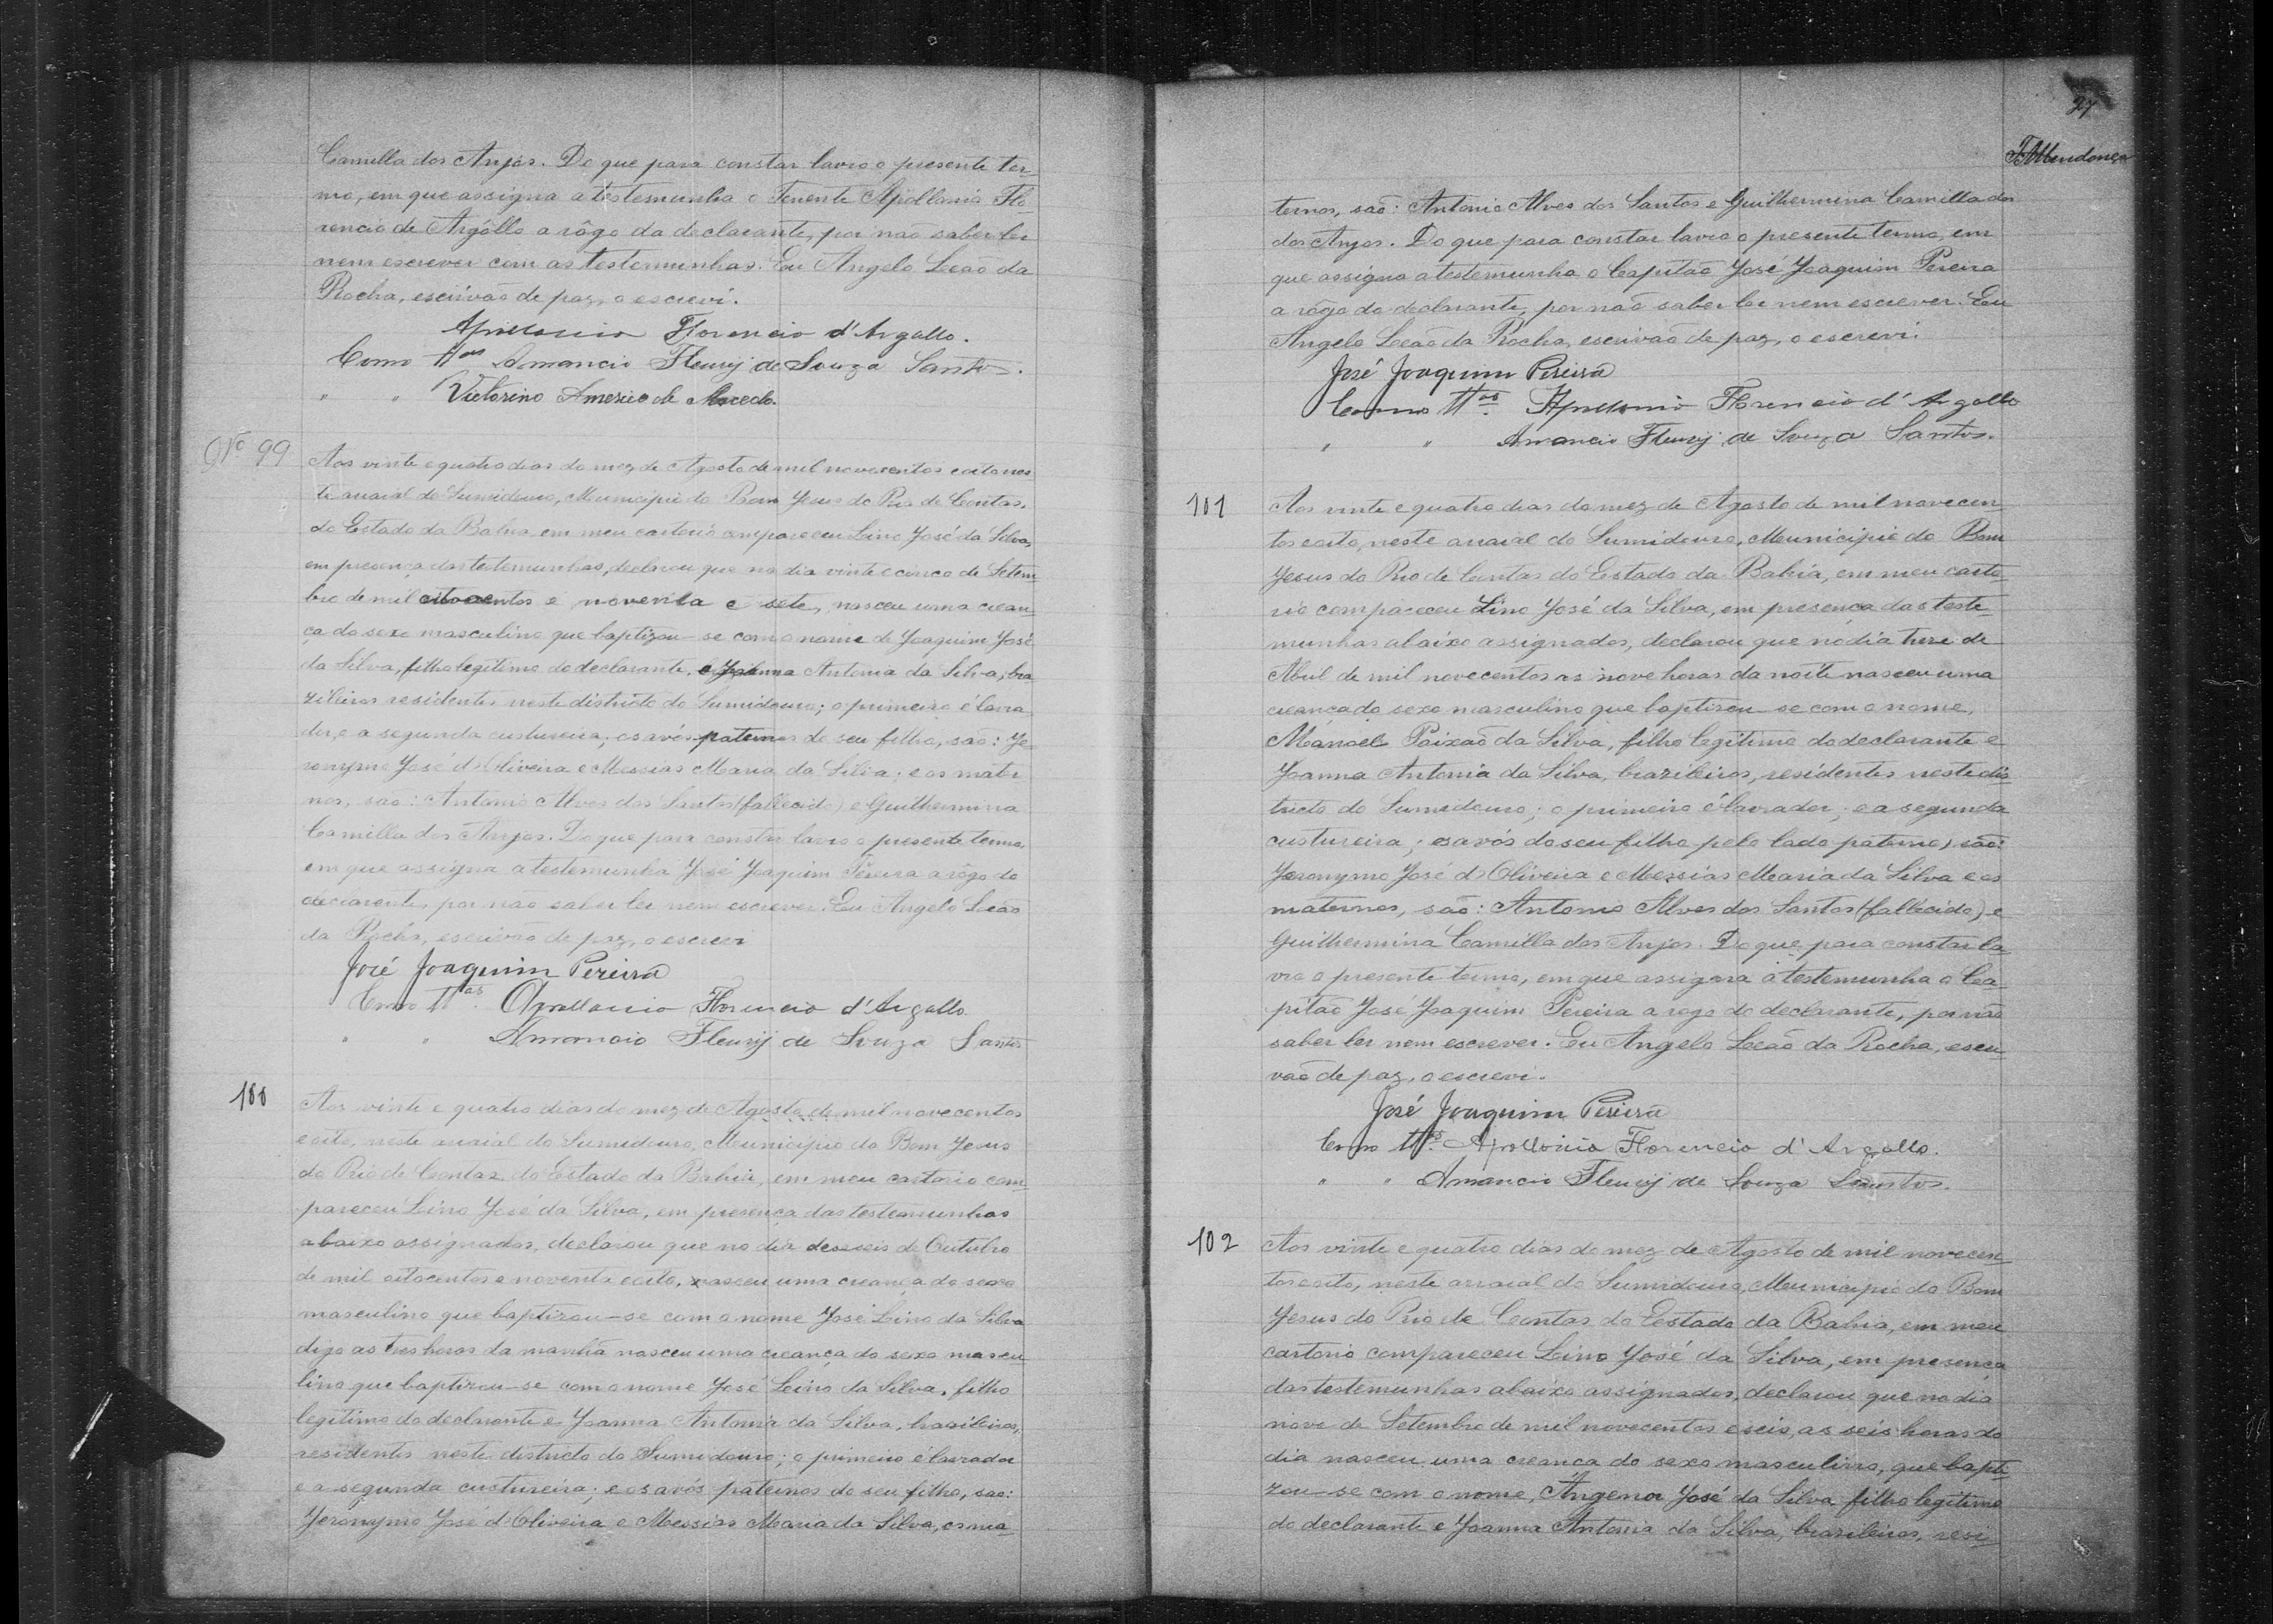 Camilla dos Anjos. Do que para constar lavro o presente ter-
mo, em que assigna a testemunha o Tenente Apollonio Flo-
rencio de Argôllo a rôgo da declarante, por não saber ler
nem escrever com as testemunhas. Eu Angelo Leão da
Rocha, escrivão de paz, o escrevi.
Apollonio Florencio d'Argollo.
Como ttas Amancio Fleurij de Souza Santos.
" " Victorino Americo de Macedo.
Nº 99
Aos vinte e quatro dias do mez de Agosto de mil novecentos e oito nes
te arraial do Sumidouro, Municipio do Bom Jesus do Rio de Contas,
do Estado da Bahia, em meu cartorio compareceu Lino José da Silva,
em presença das testemunhas, declarou que no dia vinte e cinco de Setem
bro de mil oitocentos e noventa e sete, nasceu uma crean
ça do sexo masculino que baptizou-se com o nome de Joaquim José
da Silva, filho legitimo do declarante, e Joanna Antonia da Silva, bra
zileiros residentes neste districto do Sumidouro; o primeiro é lavra
dor, e a segunda custureira; os avós paternos de seu filho, são: Je
ronymo José d'Oliveira e Messias Maria da Silva; e os mater
nos, são: Antonio Alves dos Santos (fallecido) e Guilhermina
Camilla dos Anjos. Do que para constar lavro o presente termo,
em que assigna a testemunha José Joaquim Pereira a rôgo do
declarante, por não saber ler nem escrever. Eu Angelo Leão
da Rocha, escrivão de paz, o escrevi
José Joaquim Pereira
Como ttas. Apollonio Florencio d'Argollo.
" " Amancio Fleurij de Souza Santos
100
Aos vinte e quatro dias do mez de Agosto de mil novecentos
e oito, neste arraial do Sumidouro, Municipio do Bom Jesus
do Rio de Contas do Estado da Bahia, em meu cartorio com-
pareceu Lino José da Silva, em presença das testemunhas
abaixo assignados, declarou que no dia deseseis de Outubro
de mil oitocentos e noventa e oito, nasceu uma creança do sexo
masculino que baptizou-se com o nome José Lino da Silva
digo as tres horas da manhã nasceu uma creança do sexo mascu
lino que baptizou-se com o nome José Lino da Silva, filho
legitimo do declarante e Joanna Antonia da Silva, brazileiros,
residentes neste districto do Sumidouro; o primeiro é lavrador
e a segunda custureira; e os avós paternos do seu filho, são:
Jeronymo José d'Oliveira e Messias Maria da Silva, os ma-
97
Mendonça
ternos, são: Antonio Alves dos Santos e Guilhermina Camilla dos
dos Anjos. Do que para constar lavro o presente termo, em
que assigna a testemunha o Capitão José Joaquim Pereira
a rôgo do declarante, por não saber ler nem escrever. Eu
Angelo Leão da Rocha, escrivão de paz, o escrevi.
José Joaquim Pereira
Como ttas. Apollonio Florencio d'Argollo
" " Amancio Fleurij de Souza Santos.
101
Aos vinte e quatro dias do mez de Agosto de mil novecen
tos e oito, neste arraial do Sumidouro, Municipio do Bom
Jesus do Rio de Contas do Estado da Bahia, em meu carto
rio compareceu Lino José da Silva, em presença das teste
munhas abaixo assignados, declarou que no dia treze de
Abril de mil novecentos as nove horas da noite nasceu uma
creança do sexo masculino que baptizou-se com o nome,
Manoel Paixão da Silva, filho legitimo do declarante e
Joanna Antonia da Silva, brazileiros, residentes neste dis
tricto do Sumidouro; o primeiro é lavrador, e a segunda
custureira; os avós do seu filho pelo lado paterno, são:
Jeronymo José d'Oliveira e Messias Maria da Silva e os
maternos, são: Antonio Alves dos Santos (fallecido) e
Guilhermina Camilla dos Anjos. Do que para constar la-
vro o presente termo, em que assigna a testemunha o Ca-
pitão José Joaquim Pereira a rogo do declarante, por não
saber ler nem escrever. Eu Angelo Leão da Rocha, escri
vão de paz, o escrevi.
José Joaquim Pereira
Como ttas. Apollonio Florencio d'Argollo.
" " Amancio Fleurij de Souza Santos.
102
Aos vinte e quatro dias do mez de Agosto de mil novecen
tos e oito, neste arraial do Sumidouro, Municipio do Bom
Jesus do Rio de Contas do Estado da Bahia, em meu
cartorio compareceu Lino José da Silva, em presença
das testemunhas abaixo assignados, declarou que no dia
nove de Setembro de mil novecentos e seis, as seis horas do
dia nasceu uma creança do sexo masculino, que bapti
zou-se com o nome, Angenor José da Silva filho legitimo
do declarante e Joanna Antonia da Silva, brazileiros, resi-